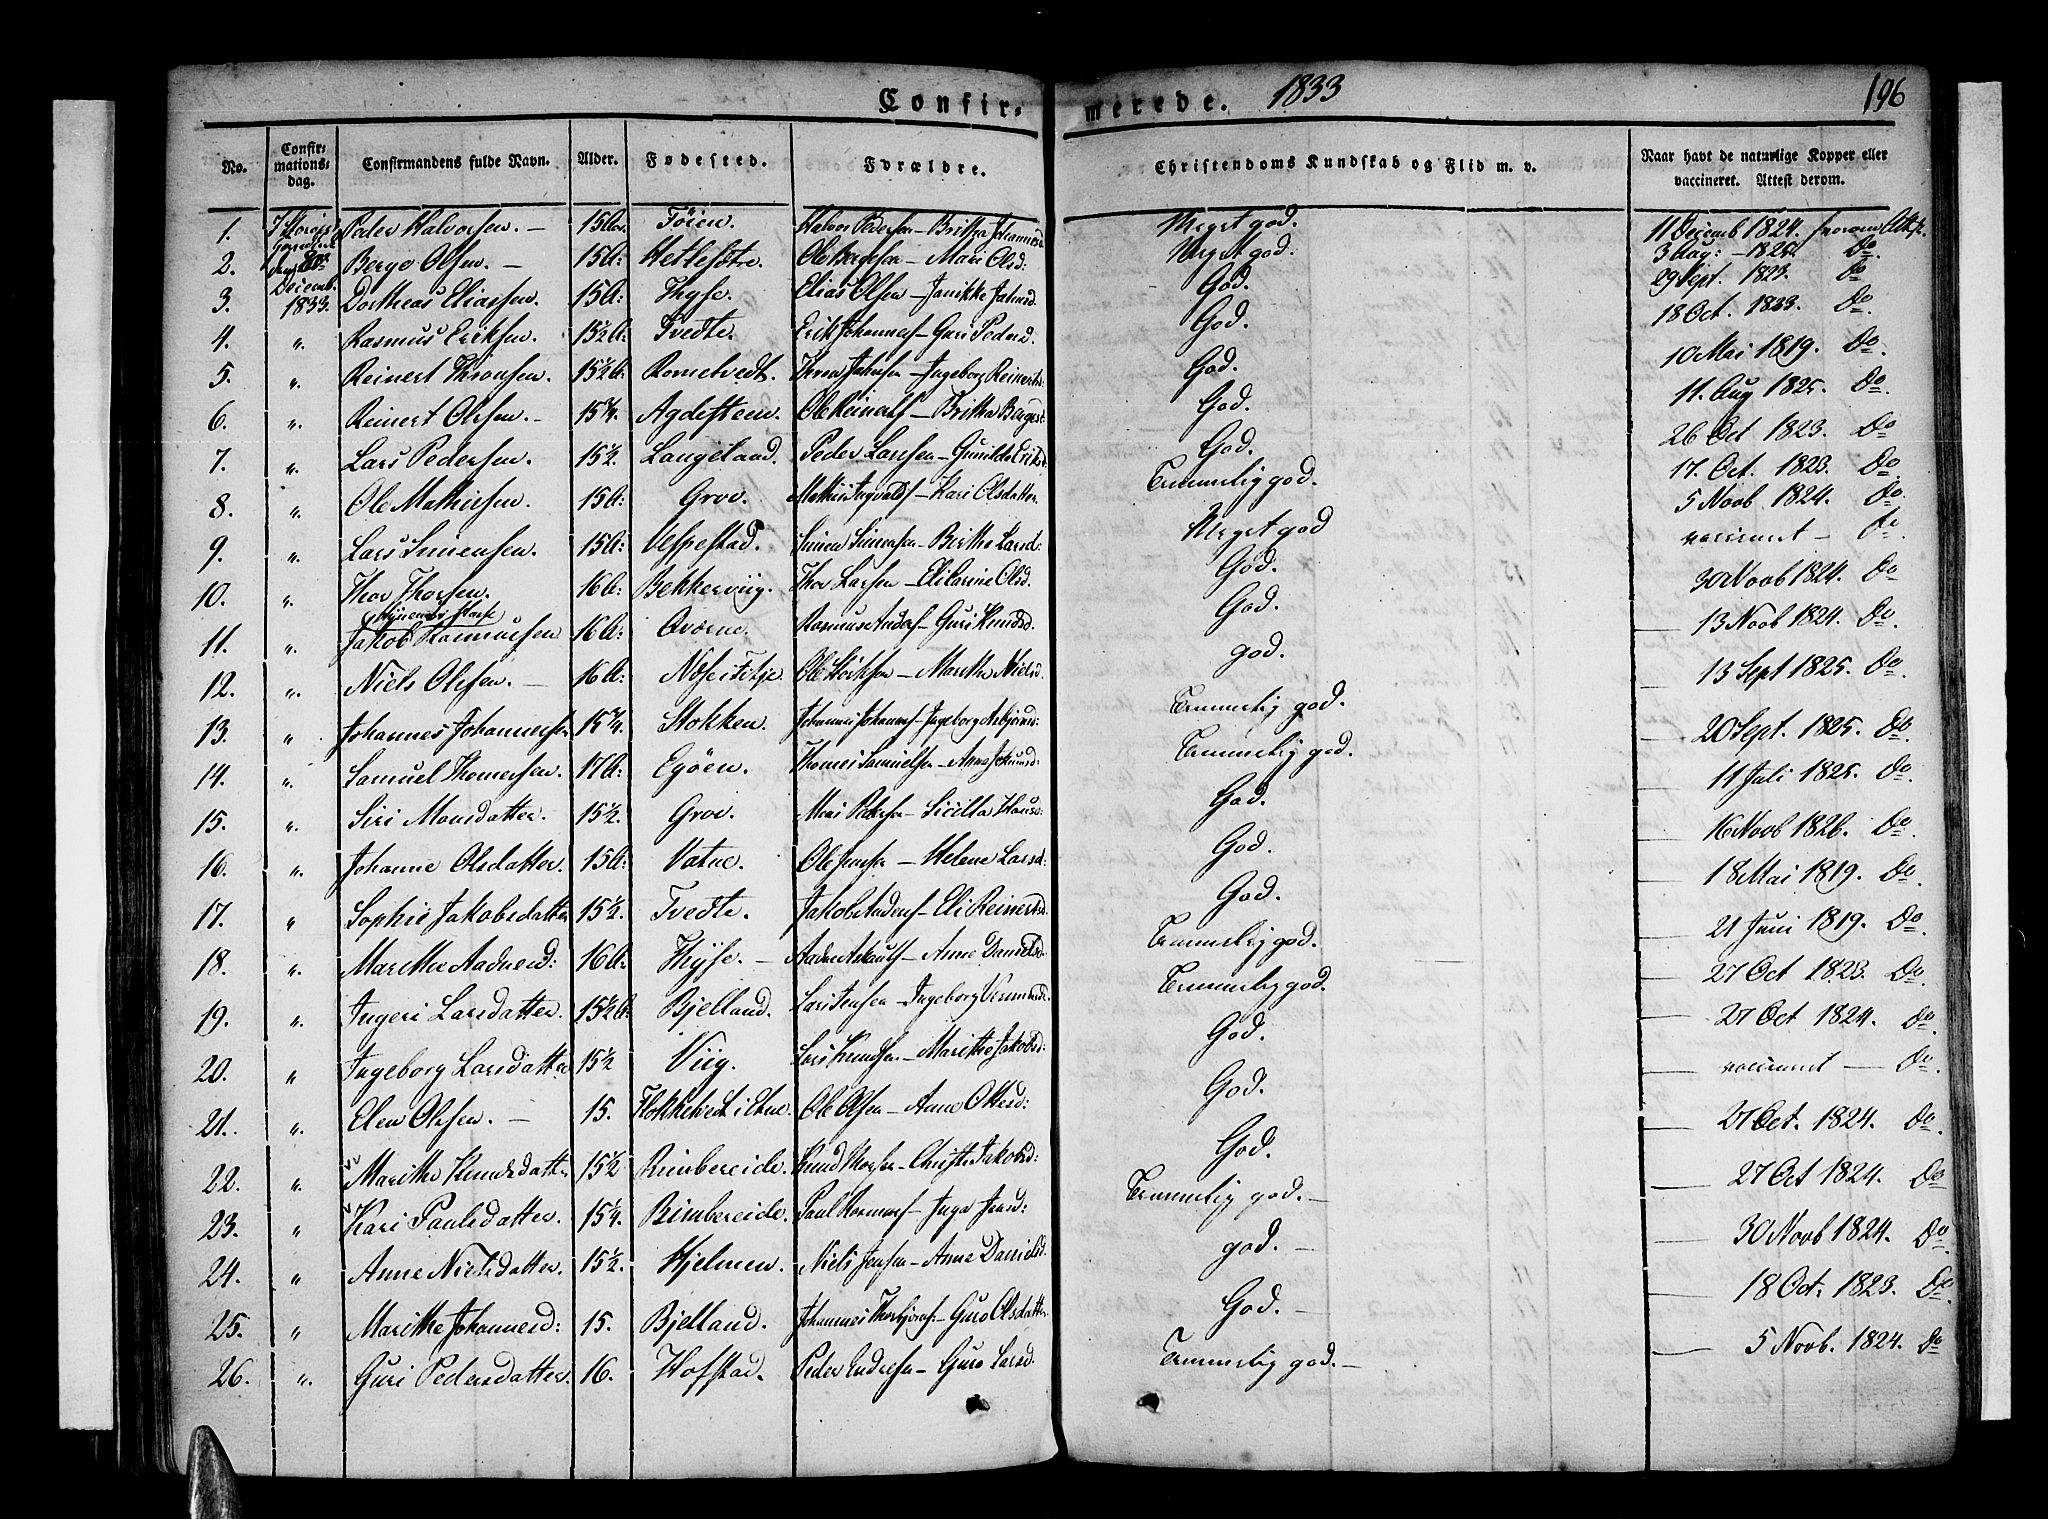 Confir-
merede. 1833
196
No. Confir-mations-dag. Confirmandens fulde Navn. Alder. Fødested. Forældre. Christendoms Kundskab og Flid m. v. Naar havt de naturlige Kopper eller vaccineret. Attest derom.
1. Peder Halvorsen. — 15 Føien. Halvor Pedersen — Meget god. 11 Decemb 1824.
2. Berge Olsen. — 15A: Ole — Mari Olsd: Meget god. 3 Aug: — 1825. Do
3. Decemb. 1833. Dortheas Eliassen. 15A: Thyse. Elias Olsen — God. 29 Sept. 1823. Do
4. " Rasmus Eriksen. 15½A: Tvedte. Erik Johannesf — Guri Pedersd. God. 18 Oct. 1833. Do
5. " Reinert 15½A: Rometvedt. — Ingeborg Reinertsd: God. 10 Mai 1819. Do
6. " Reinert Olsen. — 15¾. Agdesteen. Ole Reinertsf — Britha God. 11. Aug 1825. Do
7. " Lars Pedersen. 15½. Langeland. Peder Larssen — Eriksd God. 26 Oct 1823. Do
8. " Ole Mathiesen. 15A: Grov. — Kari Olsdatter Temmelig god. 17. Oct. 1823. Do
9. " Lars Simensen. 15A: Vespestad. Simen Simensen — Birthe Larsd: Meget god 5 Novb 1824. Do
10. " Thor Thorsen. 16A: Bekkerviig. Thor Larsen — Olsd. God. vaccineret — Do
11. " Jakob Rasmussen 16A: — Guri Knudsd. God. 30 Novb 1824. Do
12. " Niels Olsen. — 16A: — Marithe Nielsd god. 13 Novb 1824. Do
13. " Johannes Johannessen 15¾. Stokken. Johannes Johannesf — Ingeborg Temmelig god. 13 Sept 1825. Do
14. " Samuel Thomessen. 17A: Egøen. Thomes Samuelsen — Temmelig god. 20 Sept. 1825. Do
15. " Siri Monsdatter. 15½. Grov. Mons Pedersen — God. 11 Juli 1825. Do
16. " Johanne Olsdatter. 15A: Vatne. Ole — Helene Larsd: God. 16 Novb 1826. Do
17. " Sophie Jakobsdatter 15½. Tvedte. — Eli Reinertsd. God. 18 Mai 1819. Do
18. " Marithe 16A: Thyse. — — Anne Danielsd. Temmelig god. 21 Juni 1819. Do
19. " Ingeri Larsdatter. 15½A: Bjelland. Lars Jensen — Ingeborg Temmelig god. 27 Oct 1823. Do
20. " Ingeborg Larsdatter 15½ Viig. Lars Knudsen — Marithe Jakobsd: God. 27 Oct 1824. Do
21. " Elen Olsen. — 15. i Etne. Ole Olsen — Anne Ottesd: God. vaccineret — Do
22. " Marithe Knudsdatter 15½ Rimbereide. Knud Thorsen — Jakobsd: God. 27 Oct. 1824. Do
23. " Kari Paulsdatter. 15¼. Rimbereide. Paul — Inga Jensd: Temmelig god. — 27 Oct 1824. Do
24. " Anne Nielsdatter. 15½. Hjelmen. Niels Jensen — Anne Danielsd. god. — 30 Novb 1824. Do
25. " Marithe Johannesd: 15. Bjelland. Johannes — Guro Olsdatter. God. — 18 Oct: 1823. Do
26. " Guri Pedersdatter. 16. Hofstad. Peder Endresen — Guro Larsd. Temmelig god. — 5 Novb. 1824. Do